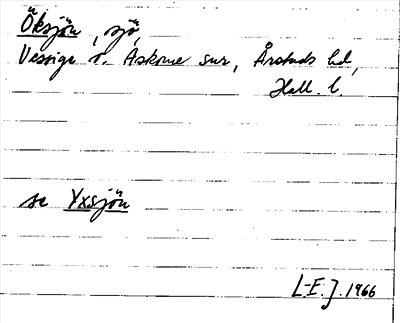 Öksjön, sjö,
Vessige o. Askome snr, Årstads hd,
Hall. l.
se Yxsjön
L-E. J. 1966